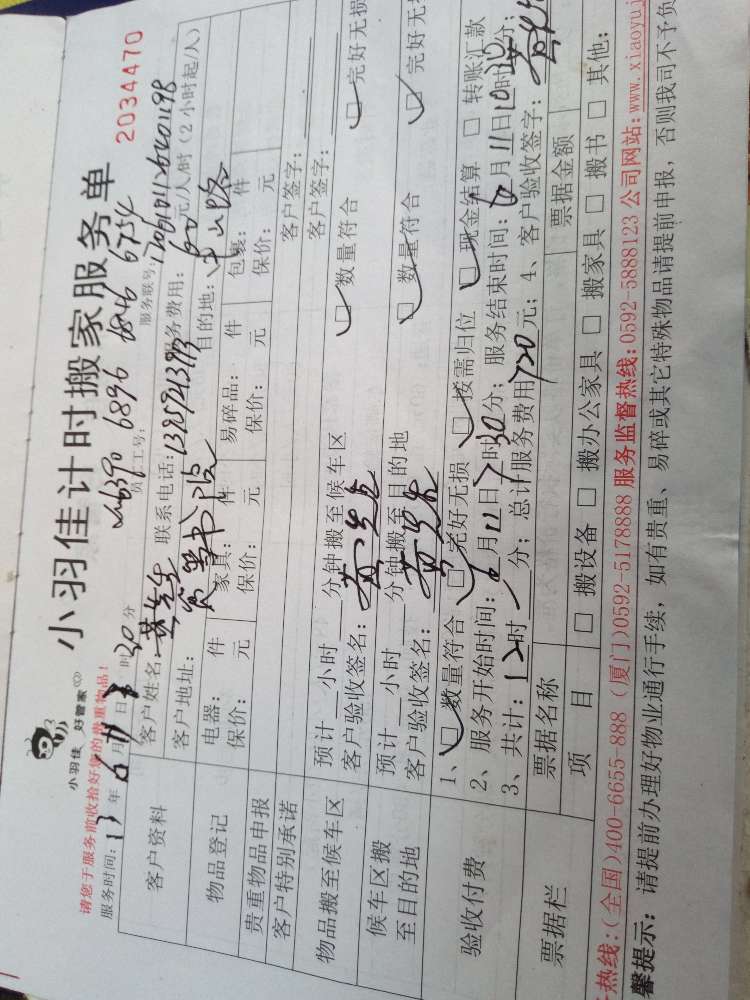 小羽佳计时搬家服务单
2034470
小羽佳 好管家
请您于服务前收拾好您的贵重物品!
员工工号: 6390 6896 6846 6754
服务联号:
服务时间: 13 年 6 月 11 日 7 时 30 分
客户资料
客户姓名: 黄先生 联系电话: 服务费用: 60 元/人/时(2小时起/人)
客户地址: 目的地: 中山路
物品登记
电器: 件 家具: 件 易碎品: 件 包裹: 件
保价: 元 保价: 元 保价: 元 保价: 元
贵重物品申报 客户签字:
客户特别承诺 客户签字:
物品搬至候车区
预计 小时 分钟搬至候车区 □数量符合 □完好无损
客户验收签名: 黄先生
候车区搬至目的地
预计 小时 分钟搬至目的地 □数量符合 □完好无损
客户验收签名: 黄先生
验收付费
1、□数量符合 □完好无损 □按需归位 □现金结算 □转账汇款
2、服务开始时间: 6月11日7时30分; 服务结束时间: 6月11日10时30分;
3、共计: 12时 分; 总计服务费用720元; 4、客户验收签字:
票据栏
票据名称 票据金额
项目 □搬设备 □搬办公家具 □搬家具 □搬书 □其他:
热线:(全国)400-6655-888 (厦门)0592-5178888 服务监督热线:0592-5888123 公司网站:www.xiaoyuj
馨提示: 请提前办理好物业通行手续,如有贵重、易碎或其它特殊物品请提前申报,否则我司不予负